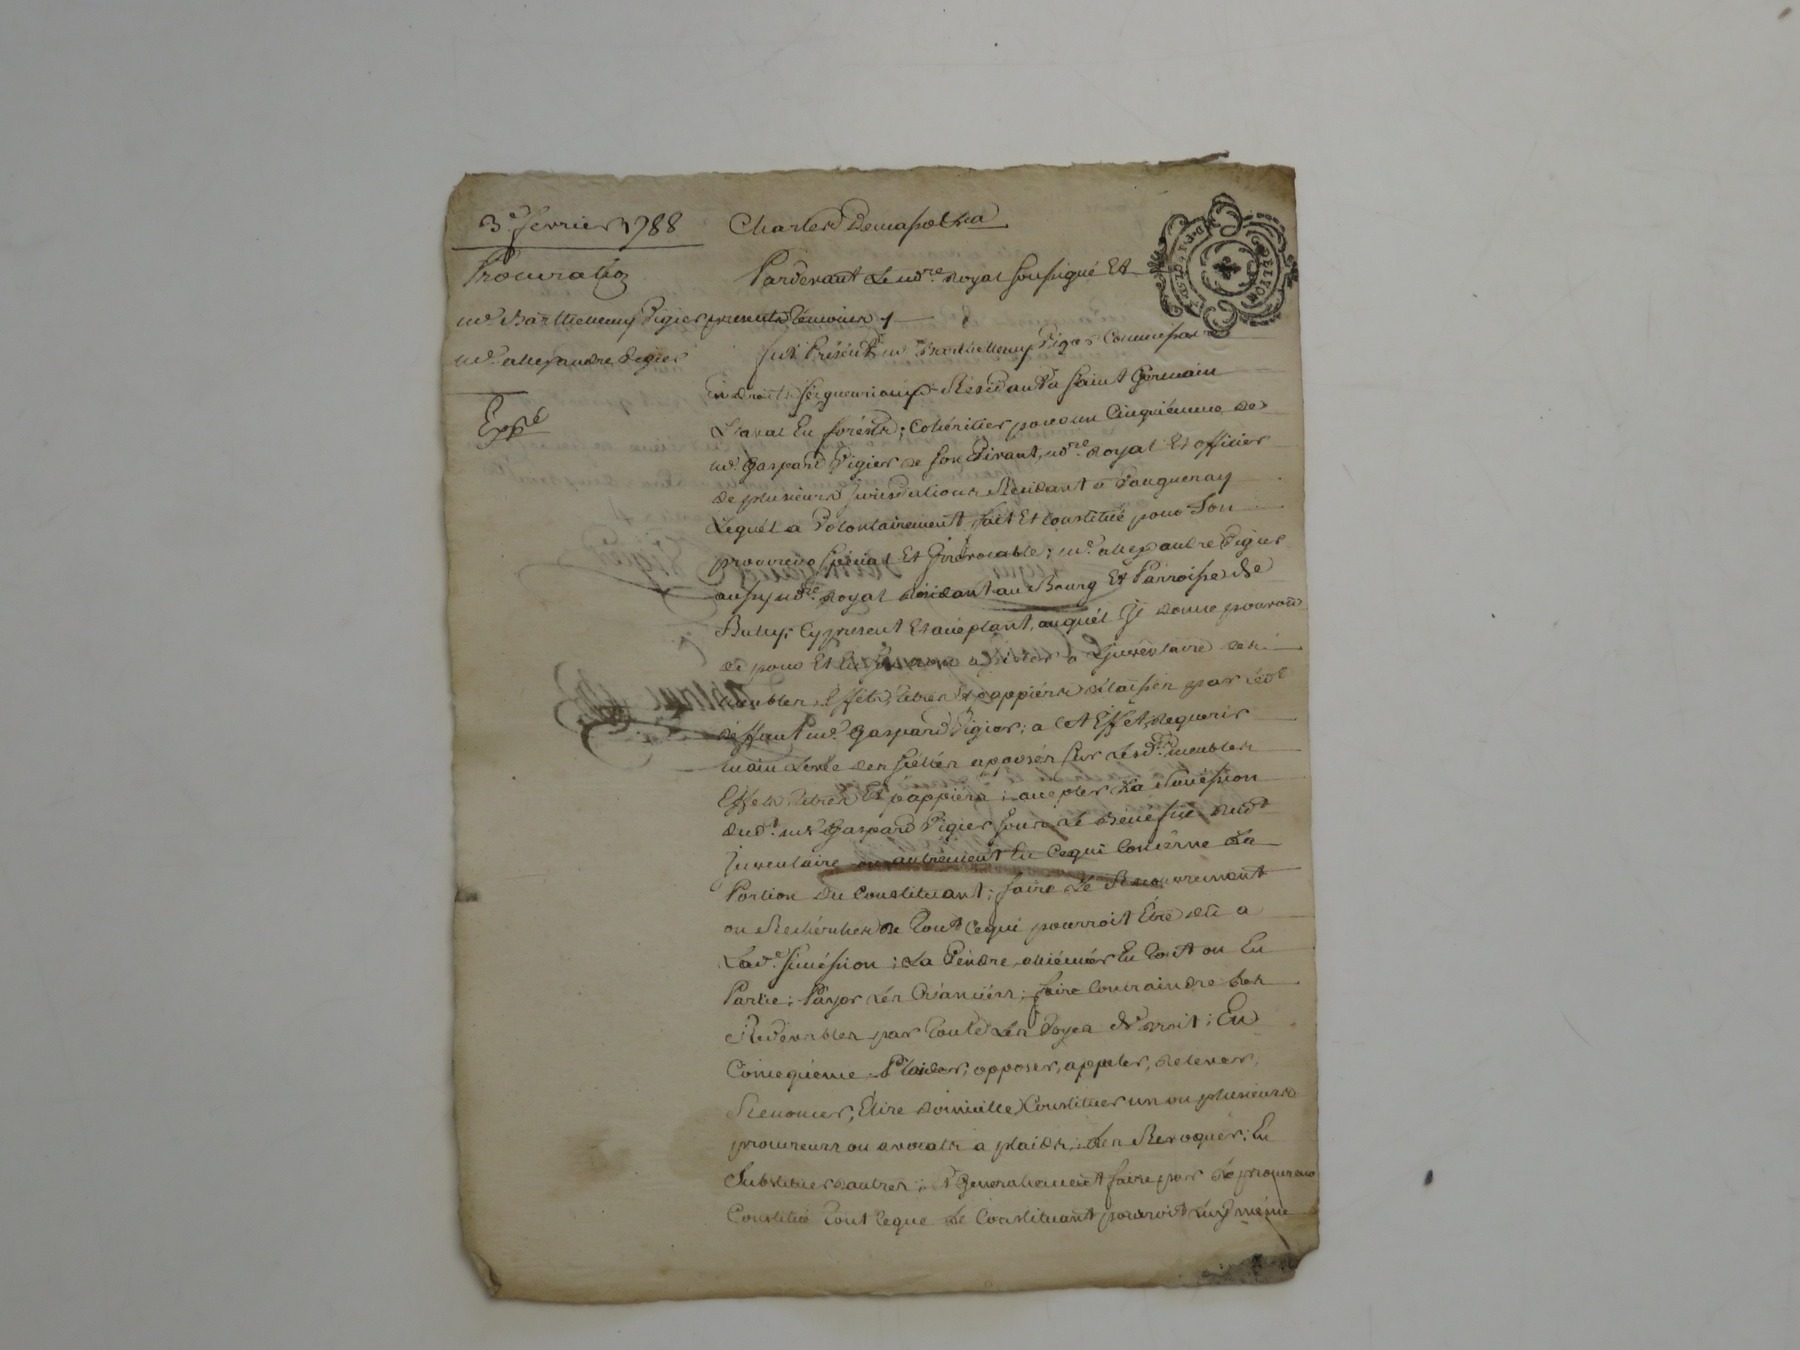 3e fevrier 1788
Procuration
me. Barthelemy Pigier
me. allexandre Pigier
Expé
Pardevant Le nore. Royal soussigné Et
presents temoins
fut Présent me. Barthelemy Pigier Commissaire
En droits seigneuriaux Résidant a saint Germain
Laval En forests; Cohéritier pour un Cinquiémme de
me. Gaspard Pigier de son Vivant, nore. Royal Et officier
de plusieurs jurisdictions Résidant a Pouguenay
Lequél a Volontairement fait Et Constitué pour Son
procureur spécial Et Irrévocable; me. allexandre Pigier
aussy nore. Royal Résidant au Bourg Et Parroisse de
Bully, Cy present Et acceptant, auquél Il donne pouvoir
de pour Et En son nom assister a L'inventaire des
meubles, Efféts, titres Et pappiérs délaissés par Ledt.
déffunt me. Gaspard Pigier; a Cét Effét, Requerir
main Levée des scéllés apposés sur Lesdts. meubles
Effets titres Et pappiérs; accepter La Succéssion
dudt. me. Gaspard Pigier sous Le Bénéfice dudt.
Inventaire ou autrement En Cequi Concérne La
Portion du Constituant; faire Le Recouvrement
ou Recherches de Tout Cequi pourroit Etre dû a
Ladte. succéssion; La Véndre, alliénér En Tout ou En
Partie; Payer Les Créanciérs; faire Contraindre Les
Redévables par Toutes Les Voyes de droit; En
Conséquence Plaider, opposer, appeler, Relever,
Renoncer, Elire domicille, Constituer un ou plusieurs
procureurs ou avocats a plaids; Les Revoquér; En
Substituer dautres; Et Generallement faire par Le procureur
Constitué Tout Ceque Le Constituant pourroit Luy même